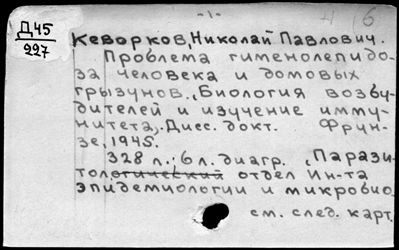 -1-
Н 16
Д45
227
Кеворков, Николай Павлович.
Проблема гименолепидо-
за человека и домовых
грызунов. Биология возбу-
дителей и изучение имму-
нитета. Дисс. докт. Фрун-
зе, 1945.
328 л.; 6 л. диагр. (Парази-
тологический отдел Ин-та
эпидемиологии и микробио
см. след. карт.